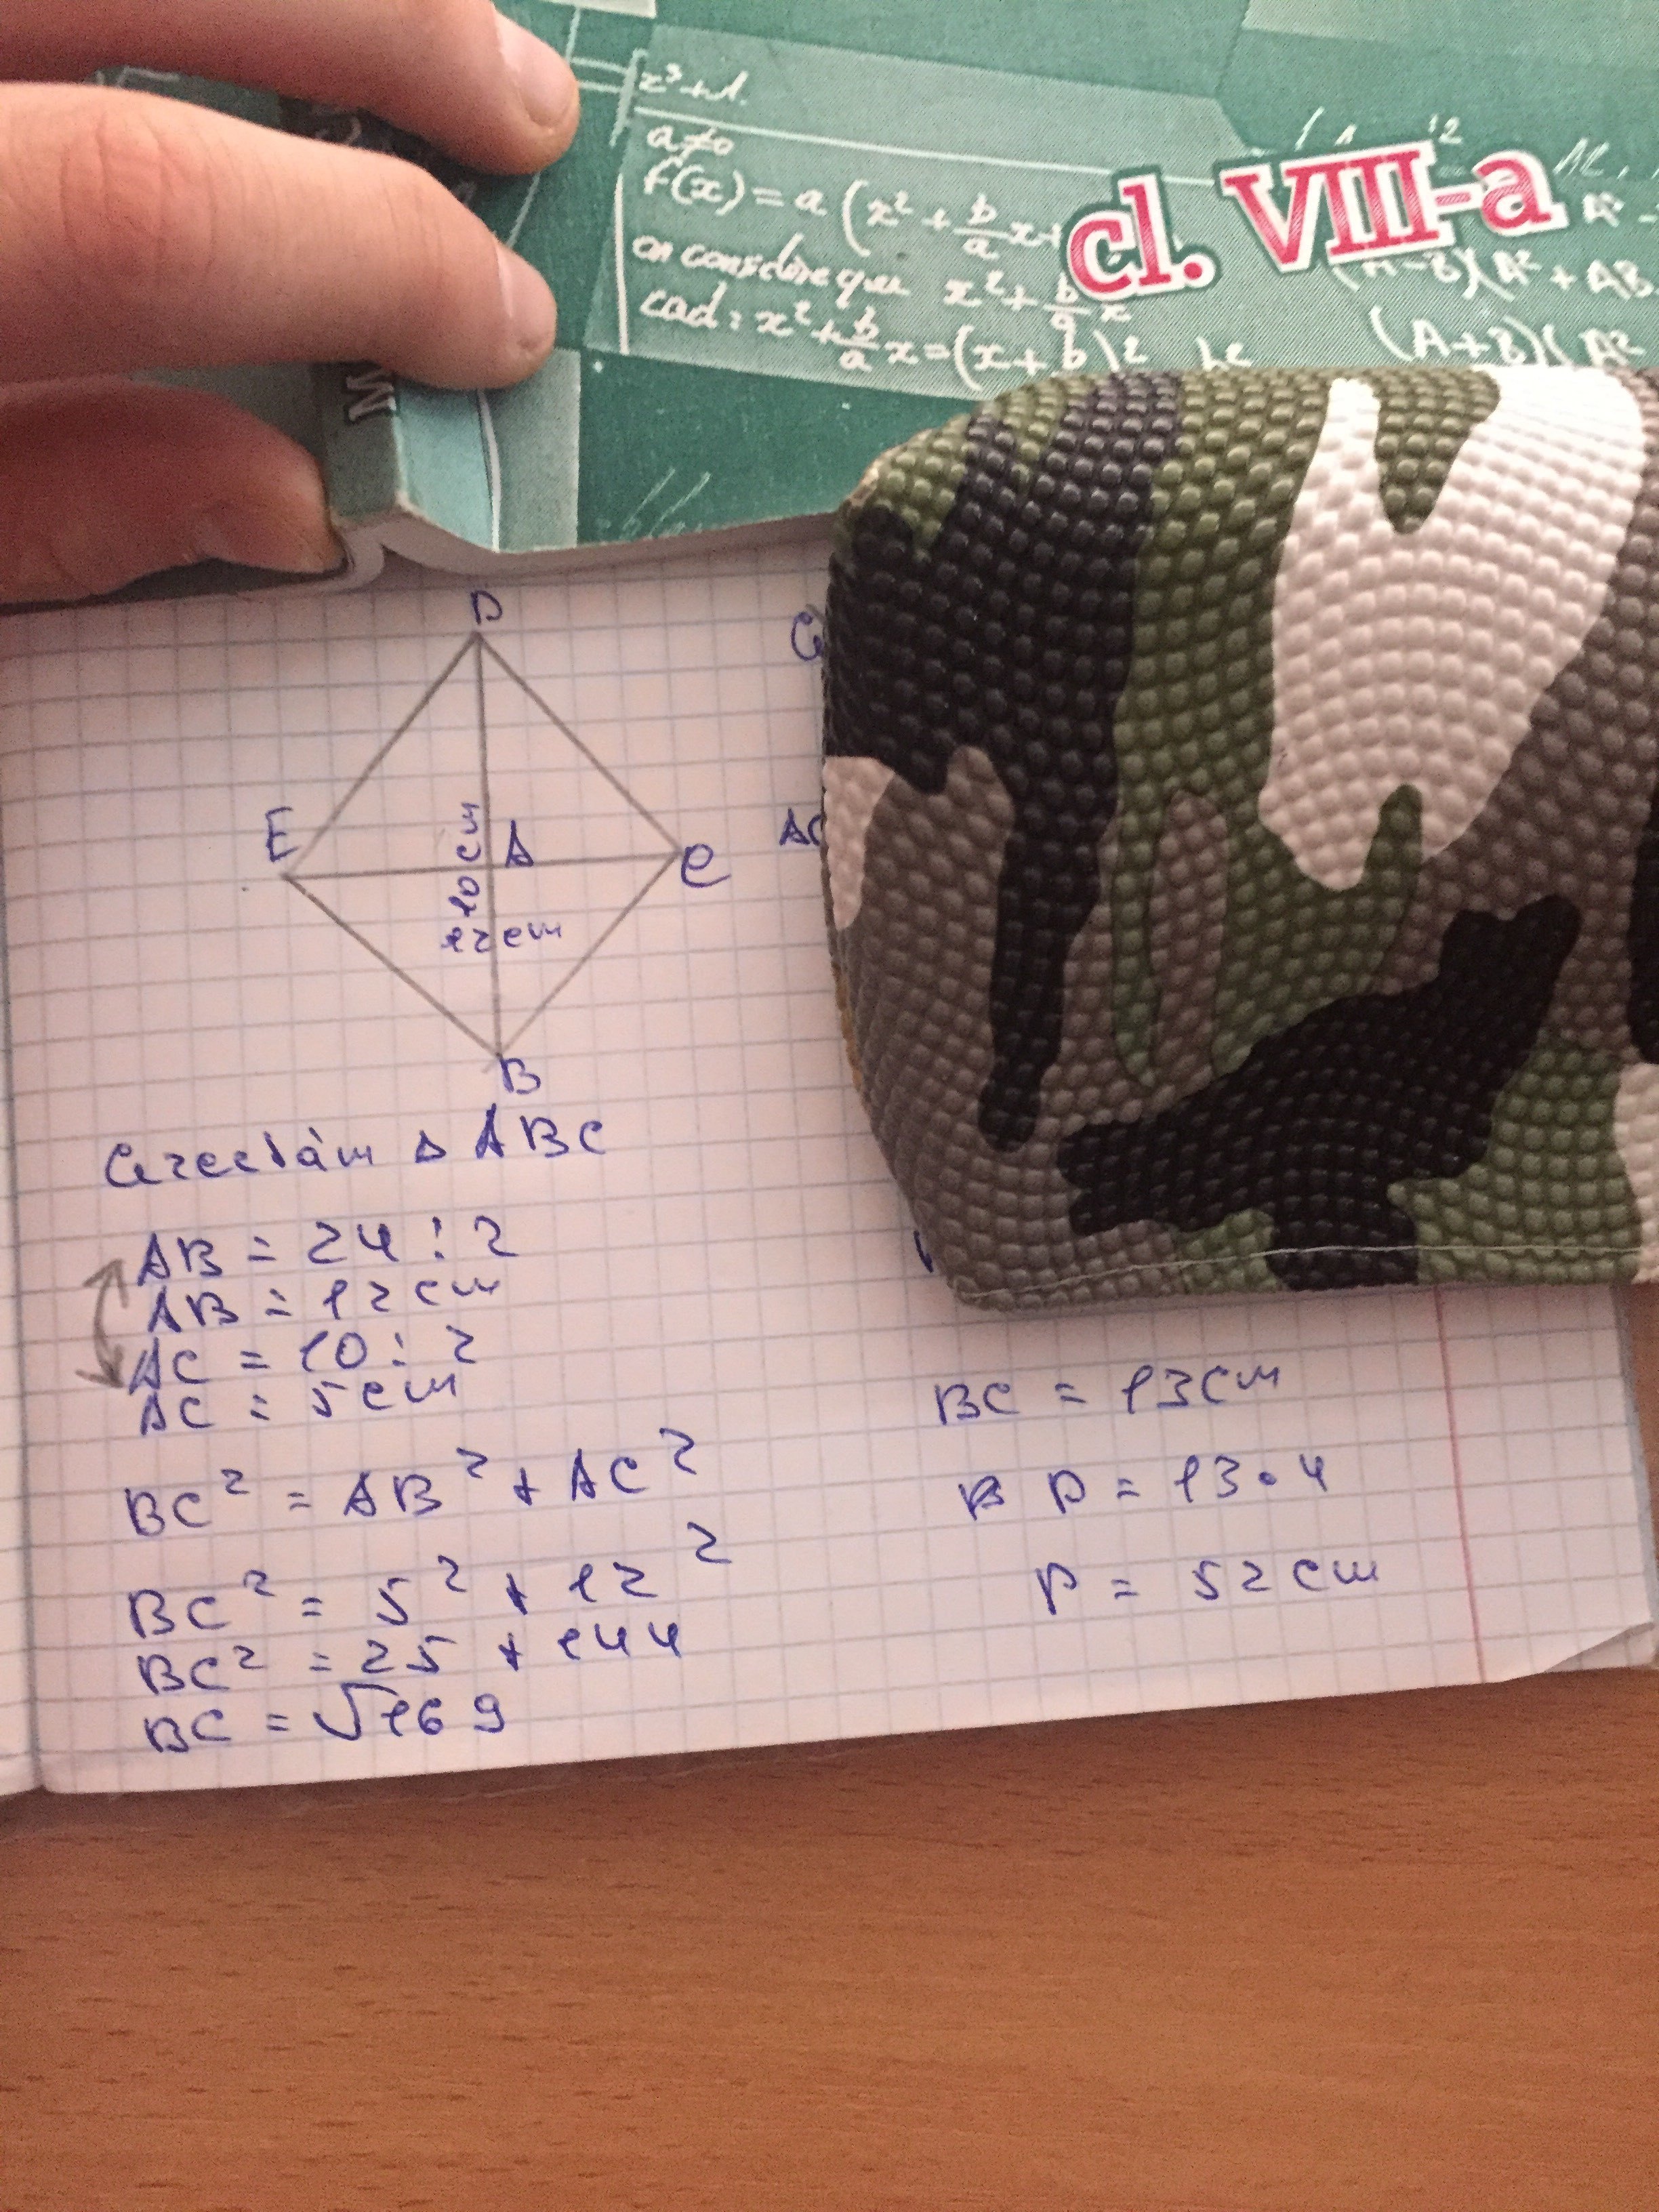 x³+1.
a≠0
f(x) = a (x² + b/a x +
on considère que x² + b/a x
cad : x² + b/a x = (x + b )²
cl. VIII-a
(A-B)(A² + AB
(A+B)( A²
D
E
A
C
10 cm
12 cm
B
AC
Cercetăm Δ ABC
AB = 24 : 2
AB = 12 cm
AC = 10 : 2
AC = 5 cm
BC² = AB² + AC²
BC² = 5² + 12²
BC² = 25 + 144
BC = √169
BC = 13 cm
P = 13 · 4
P = 52 cm